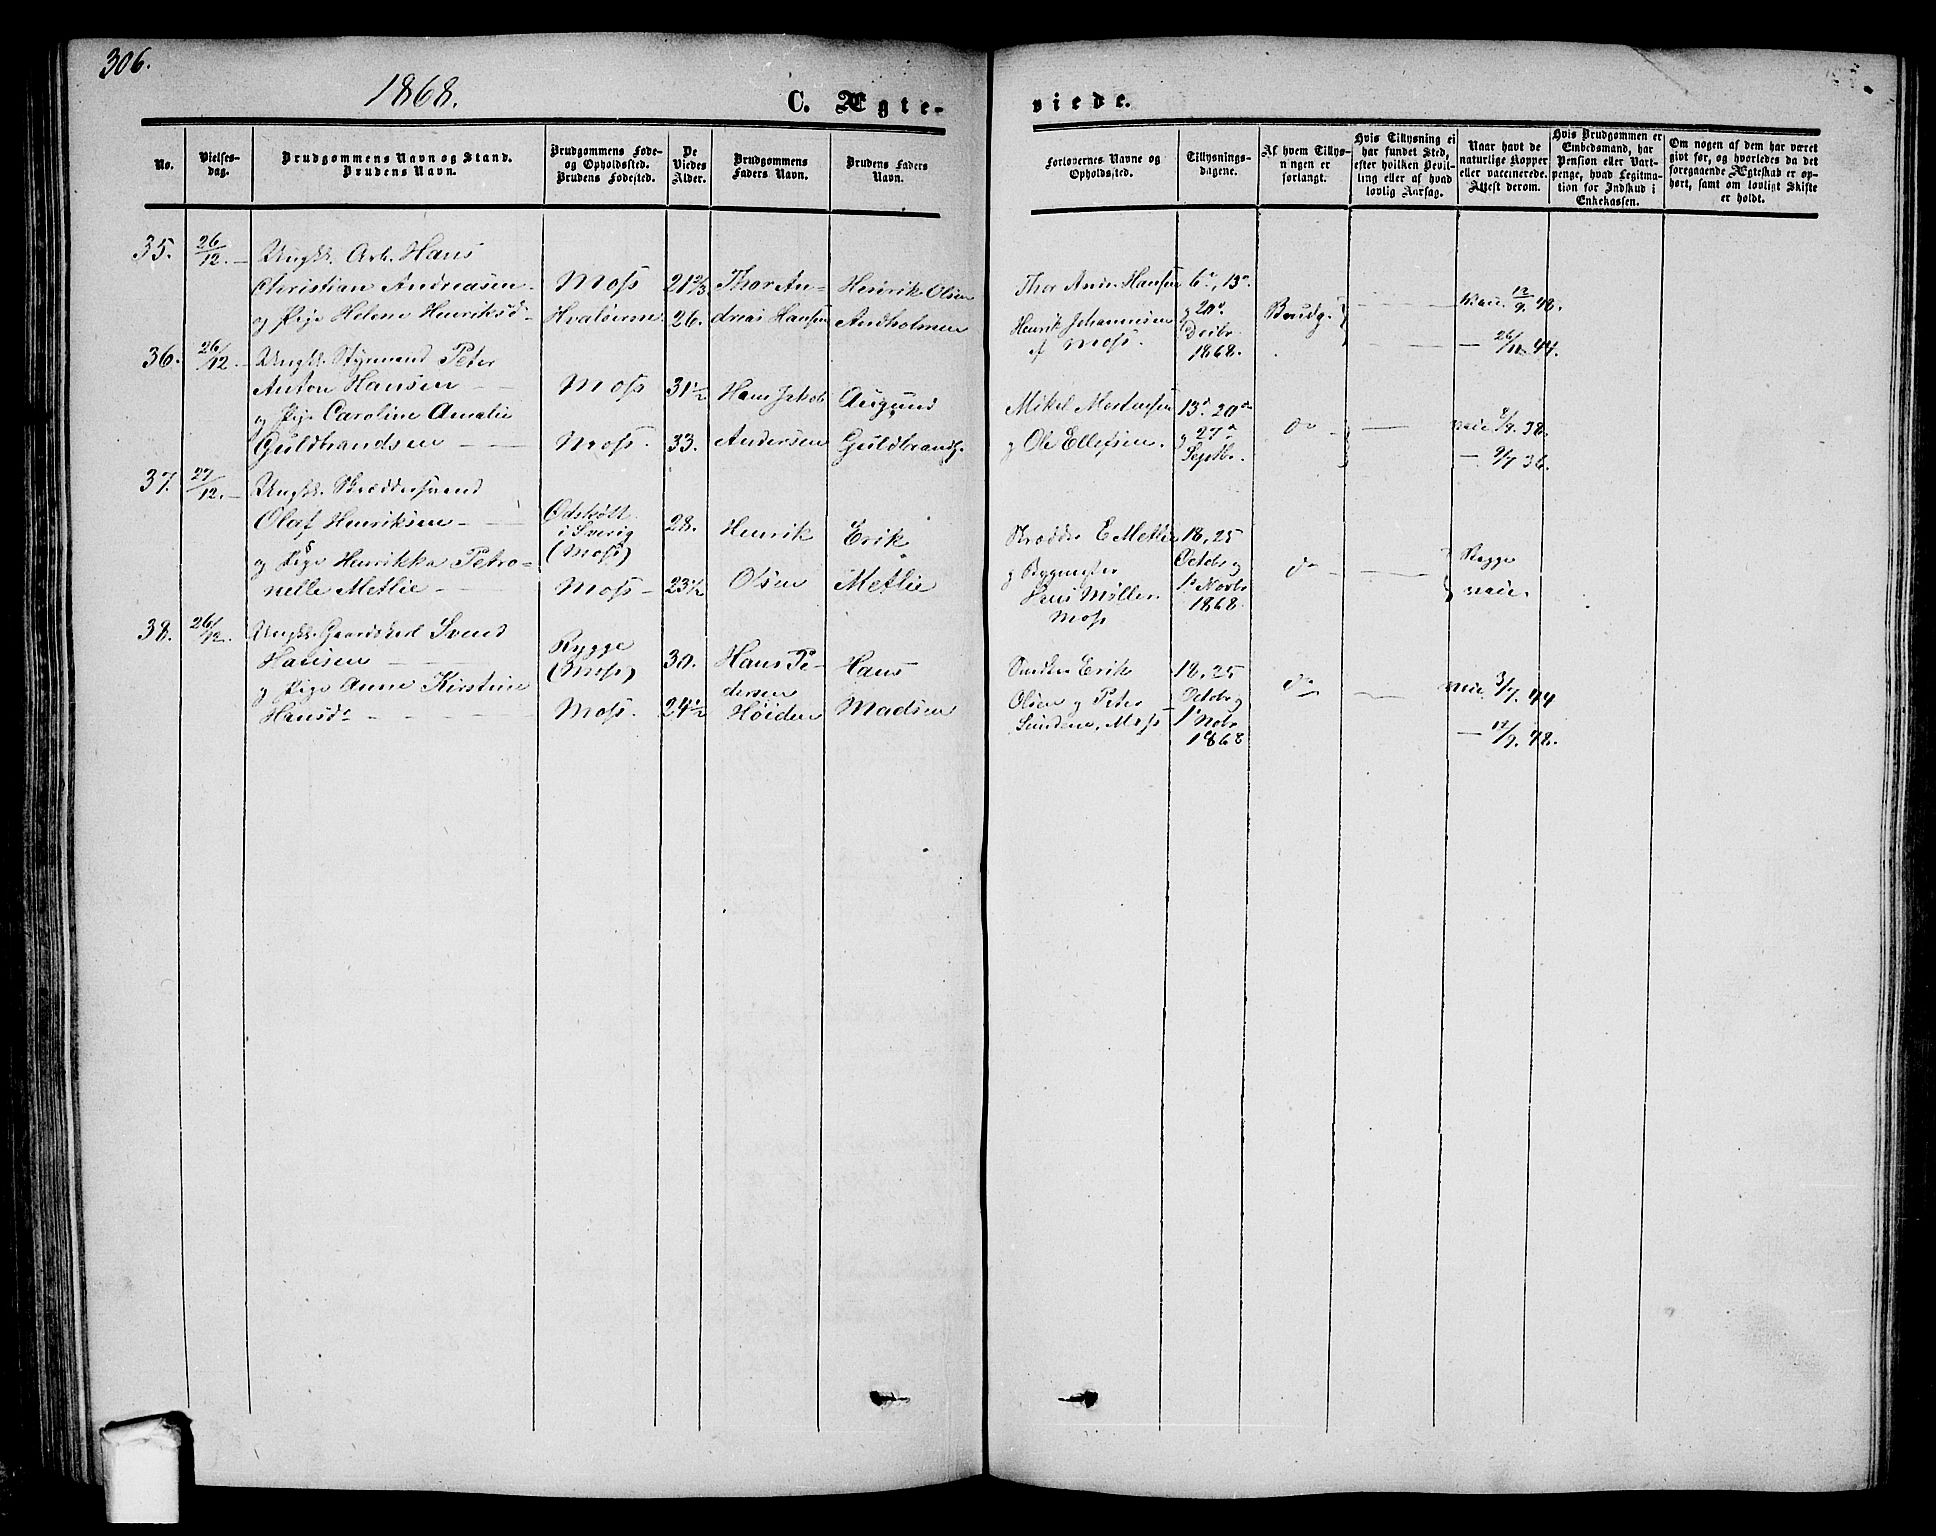 306.
1868.
C. Ægte-
viede.
No.
Vielses-
dag.
Brudgommens Navn og Stand.
Brudens Navn.
Brudgommens Føde-
og Opholdssted.
Brudens Fødested.
De
Viedes
Alder.
Brudgommens
Faders Navn.
Brudens Faders
Navn.
Forlovernes Navne og
Opholdssted.
Tillysnings-
dagene.
Af hvem Tillys-
ningen er
forlangt.
Hvis Tillysning ei
har fundet Sted,
efter hvilken Bevil-
ling eller af hvad
lovlig Aarsag.
Naar havt de
naturlige Kopper
eller vaccinerede.
Attest derom.
Hvis Brudgommen er
Enkedsmand, har
Pension eller Vart-
penge, hvad Legitima-
tion for Indskud i
Enkekassen.
Om nogen af dem har været
gift før, og hvorledes da det
foregaaende Ægteskab er op-
hørt, samt om lovligt Skifte
er holdt.
35. 26/12. Ungk. Arb. Hans
Christian Andreasen
og Pige Helene Henriksd
Moss
Hvaløerne
21 2/3
26.
Thor An-
dreas Hansen
Henrik Olsen
Andholmen
Thor Andr. Hansen
Henrik Johannesen
af Moss.
6te, 13de
og 20de
Decbr
1868.
Brudg.
vacc. 12/9. 48.
— 26/11. 44.
36. 26/12 Ungk. Styrmand Peter
Anton Hansen
og Pige Caroline Amalie
Guldbrandsen
Moss
Moss.
31 1/2
33.
Hans Jakob
Andersen
Augund
Guldbrands.
Mikel Mortensen
og Ole Ellefsen.
13de 20de
og 27de
Septb.
do
vacc. 38.
— 9/7 36.
37. 27/12. Ungk. Skræddersvend
Olaf Henriksen
og Pige Henrikka Petro-
nelle Metlie
Odskött
i Sverig
(Moss)
Moss
28.
23 1/2
Henrik
Olsen
Erik
Metlie
Skrædder E. Metlie
og Bygmester
Hans Møller
Moss
18, 25
Octobr og
1e Novbr
1868.
do
Begge
vacc.
38. 26/12. Ungk. Gaardskarl Svend
Hansen
og Pige Anne Kirstine
Hansdr
Rygge
(Moss)
Moss.
30.
24 1/2
Hans Pe-
dersen
Høiden
Hans
Madsen
Snedker Erik
Olsen og Peter
Sundene, Moss
18, 25
Octobr og
1e Nobr
1868
do
vacc 3/7. 44
— 12/9. 48.